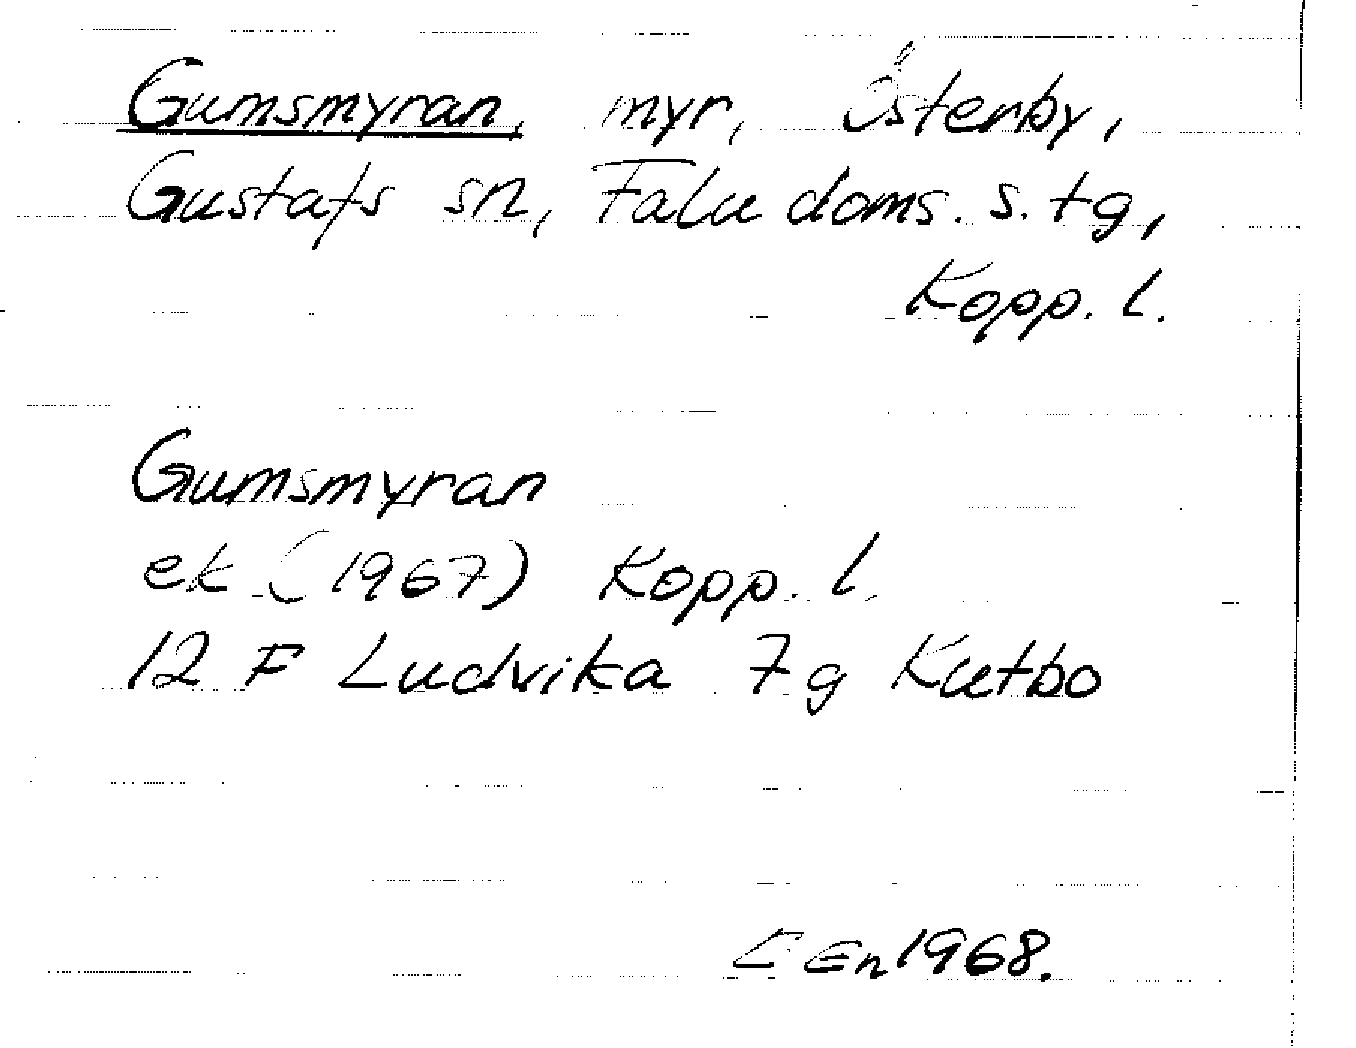 Gumsmyran, myr, Österby,
Gustafs sn, Falu doms. s. tg,
Kopp. l.
Gumsmyran
ek (1967) Kopp. l.
12 F Ludvika 7g Kutbo
E En 1968.